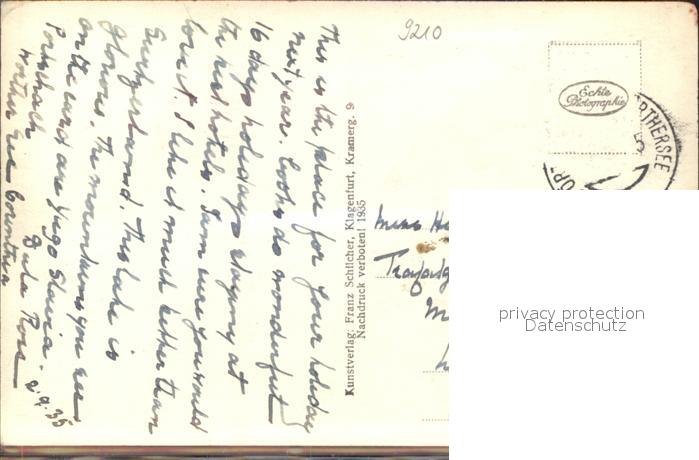 9210
This is the place for your holiday
next year. Cooks do wonderful
16 days holidays staying at
the best hotels. I am sure you would
love it. I like it much better than
Switzerland. This lake is
glorious. The mountains you see
on the card are Yugo Slavia.
Portschach
2.9.35
Kunstverlag: Franz Schilcher, Klagenfurt, Kramerg. 9
Nachdruck verboten! 1935
Echte
Photographie
RTHERSEE
5
Miss
privacy protection
Datenschutz